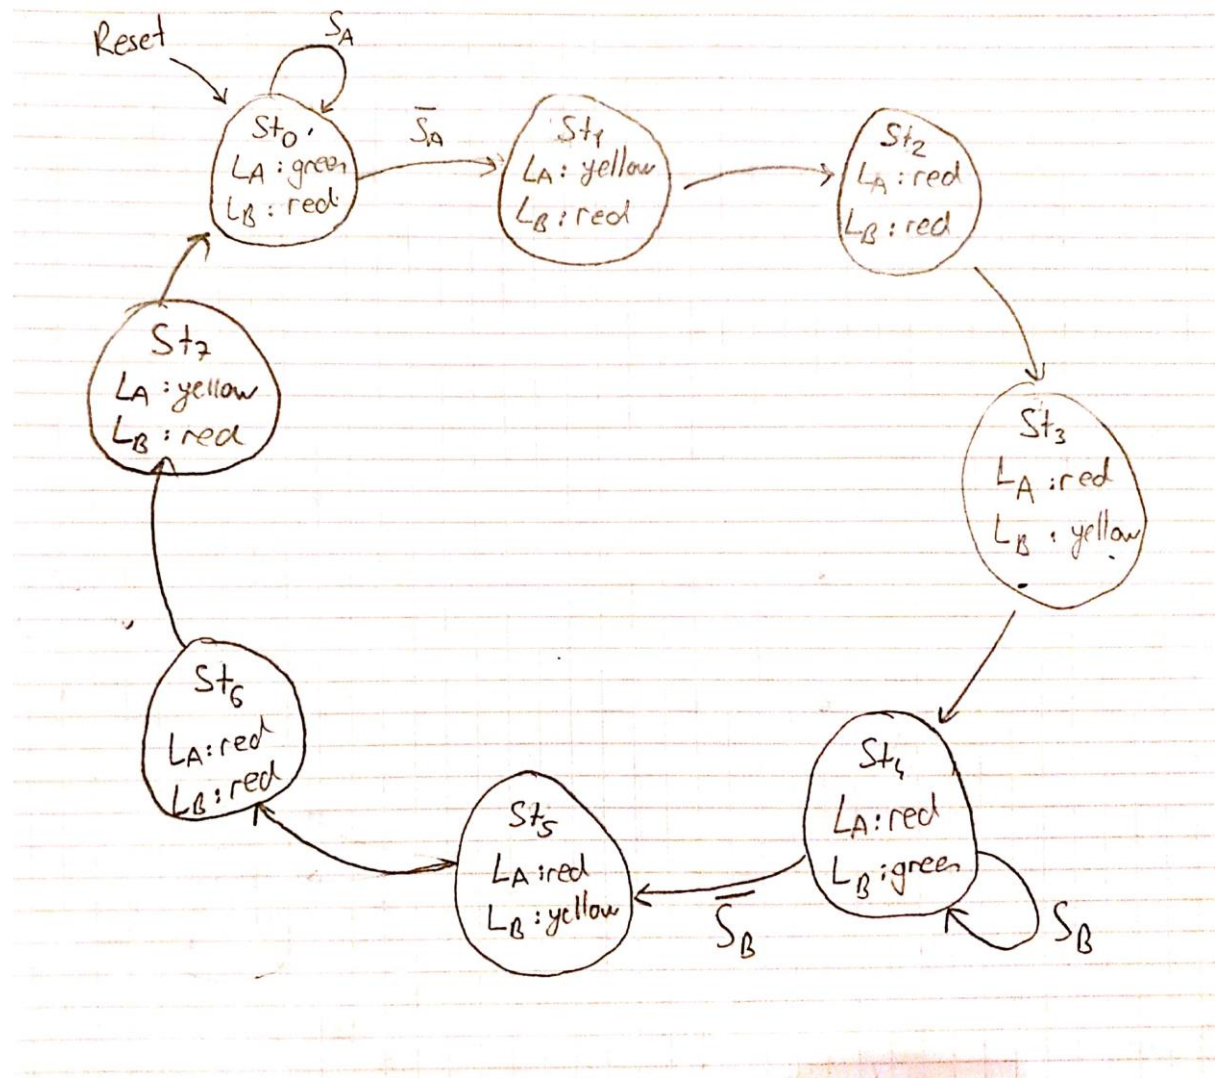 Reset
S_A
St₀
L_A : green
L_B : red
S̅_A
St₁
L_A : yellow
L_B : red
St₂
L_A : red
L_B : red
St₃
L_A : red
L_B : yellow
St₄
L_A : red
L_B : green
S_B
S̅_B
St₅
L_A : red
L_B : yellow
St₆
L_A : red
L_B : red
St₇
L_A : yellow
L_B : red